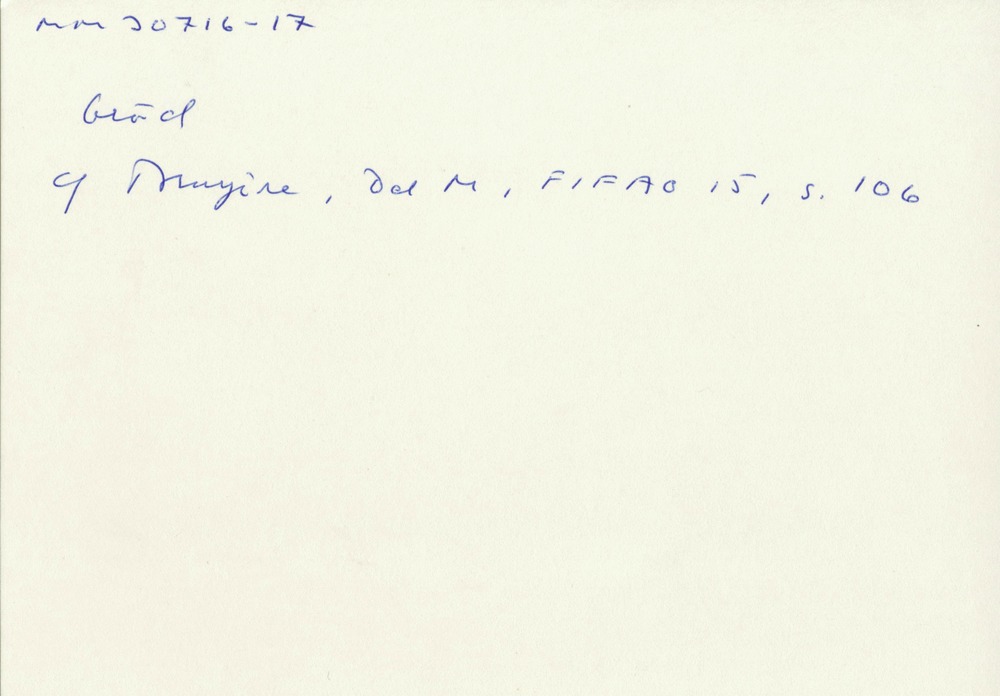 MM 30716-17
bröd
cf Bruyère, Del M, FIFAO 15, s. 106